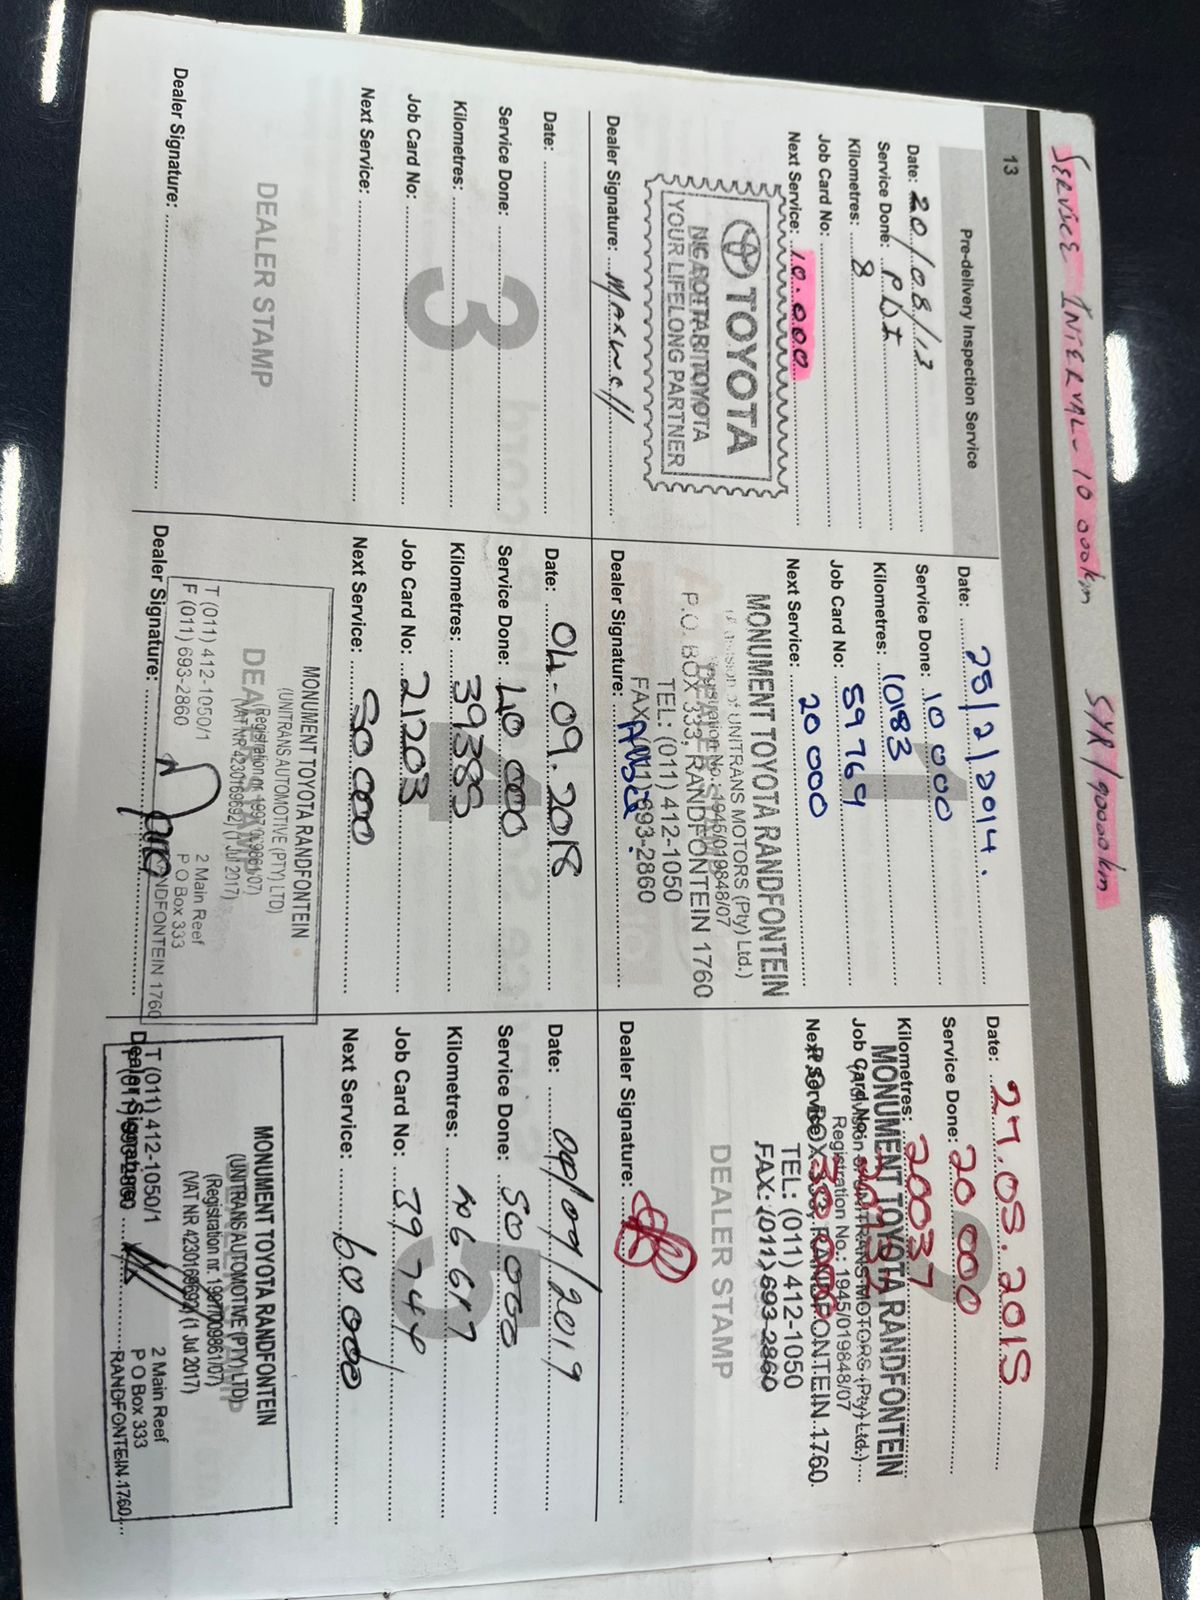 SERVICE INTERVAL - 10 000km 5YR/90000km
13
Pre-delivery Inspection Service
Date: 20/08/13
Service Done: PDI
Kilometres: 8
Job Card No:
Next Service: 10.000
TOYOTA
YOUR LIFELONG PARTNER
Dealer Signature: Maxwell
1
Date: 25/2/2014.
Service Done: 10 000
Kilometres: 10183
Job Card No: 59769
Next Service: 20 000
MONUMENT TOYOTA RANDFONTEIN
(A division of UNITRANS MOTORS (Pty) Ltd.)
Registration No.: 1945/019848/07
P.O. BOX 333, RANDFONTEIN 1760
TEL: (011) 412-1050
FAX: (011) 693-2860
Dealer Signature:
2
Date: 27.05.2015
Service Done: 20 000
Kilometres: 20037
Job Card No:
Next Service: 30 000
MONUMENT TOYOTA RANDFONTEIN
(A division of UNITRANS MOTORS (Pty) Ltd.)
Registration No.: 1945/019848/07
P.O. BOX 333, RANDFONTEIN 1760
TEL: (011) 412-1050
FAX: (011) 693-2860
DEALER STAMP
Dealer Signature:
3
Date:
Service Done:
Kilometres:
Job Card No:
Next Service:
DEALER STAMP
Dealer Signature:
4
Date: 04.09.2018
Service Done: 40 000
Kilometres: 39385
Job Card No: 21203
Next Service: 50 000
MONUMENT TOYOTA RANDFONTEIN
(UNITRANS AUTOMOTIVE (PTY) LTD)
(Registration nr. 1997/009861/07)
(VAT NR 4230169692) (1 Jul 2017)
T (011) 412-1050/1 2 Main Reef
F (011) 693-2860 P O Box 333
RANDFONTEIN 1760
Dealer Signature:
5
Date: 09/09/2019
Service Done: 50 000
Kilometres:
Job Card No: 39744
Next Service: 60 000
MONUMENT TOYOTA RANDFONTEIN
(UNITRANS AUTOMOTIVE (PTY) LTD)
(Registration nr. 1997/009861/07)
(VAT NR 4230169692) (1 Jul 2017)
T (011) 412-1050/1 2 Main Reef
F (011) 693-2860 P O Box 333
RANDFONTEIN 1760
Dealer Signature: